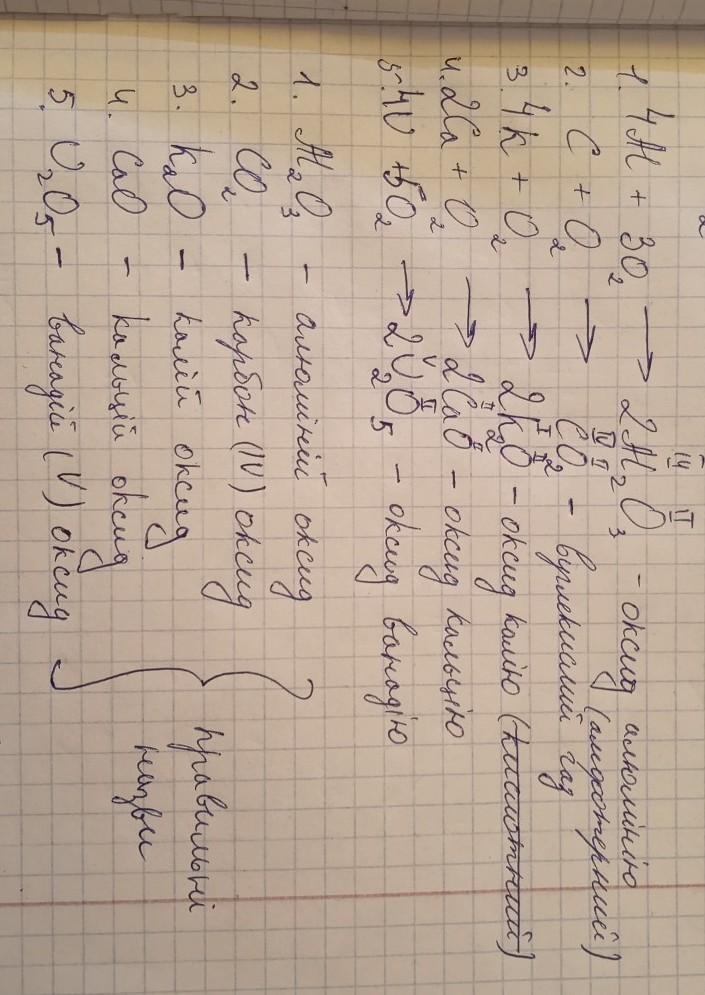 1. 4Al + 3O2 → 2Al2O3 - оксид алюмінію (амфотерний)
III II
2. C + O2 → CO2 - вуглекислий газ
IV II
3. 4K + O2 → 2K2O - оксид калію (кислотний)
I II
4. 2Ca + O2 → 2CaO - оксид кальцію
II II
5. 4V + 5O2 → 2V2O5 - оксид ванадію
V II
1. Al2O3 - алюміній оксид
2. CO2 - карбон (IV) оксид
3. K2O - калій оксид
4. CaO - кальцій оксид
5. V2O5 - ванадій (V) оксид
правильні
назви